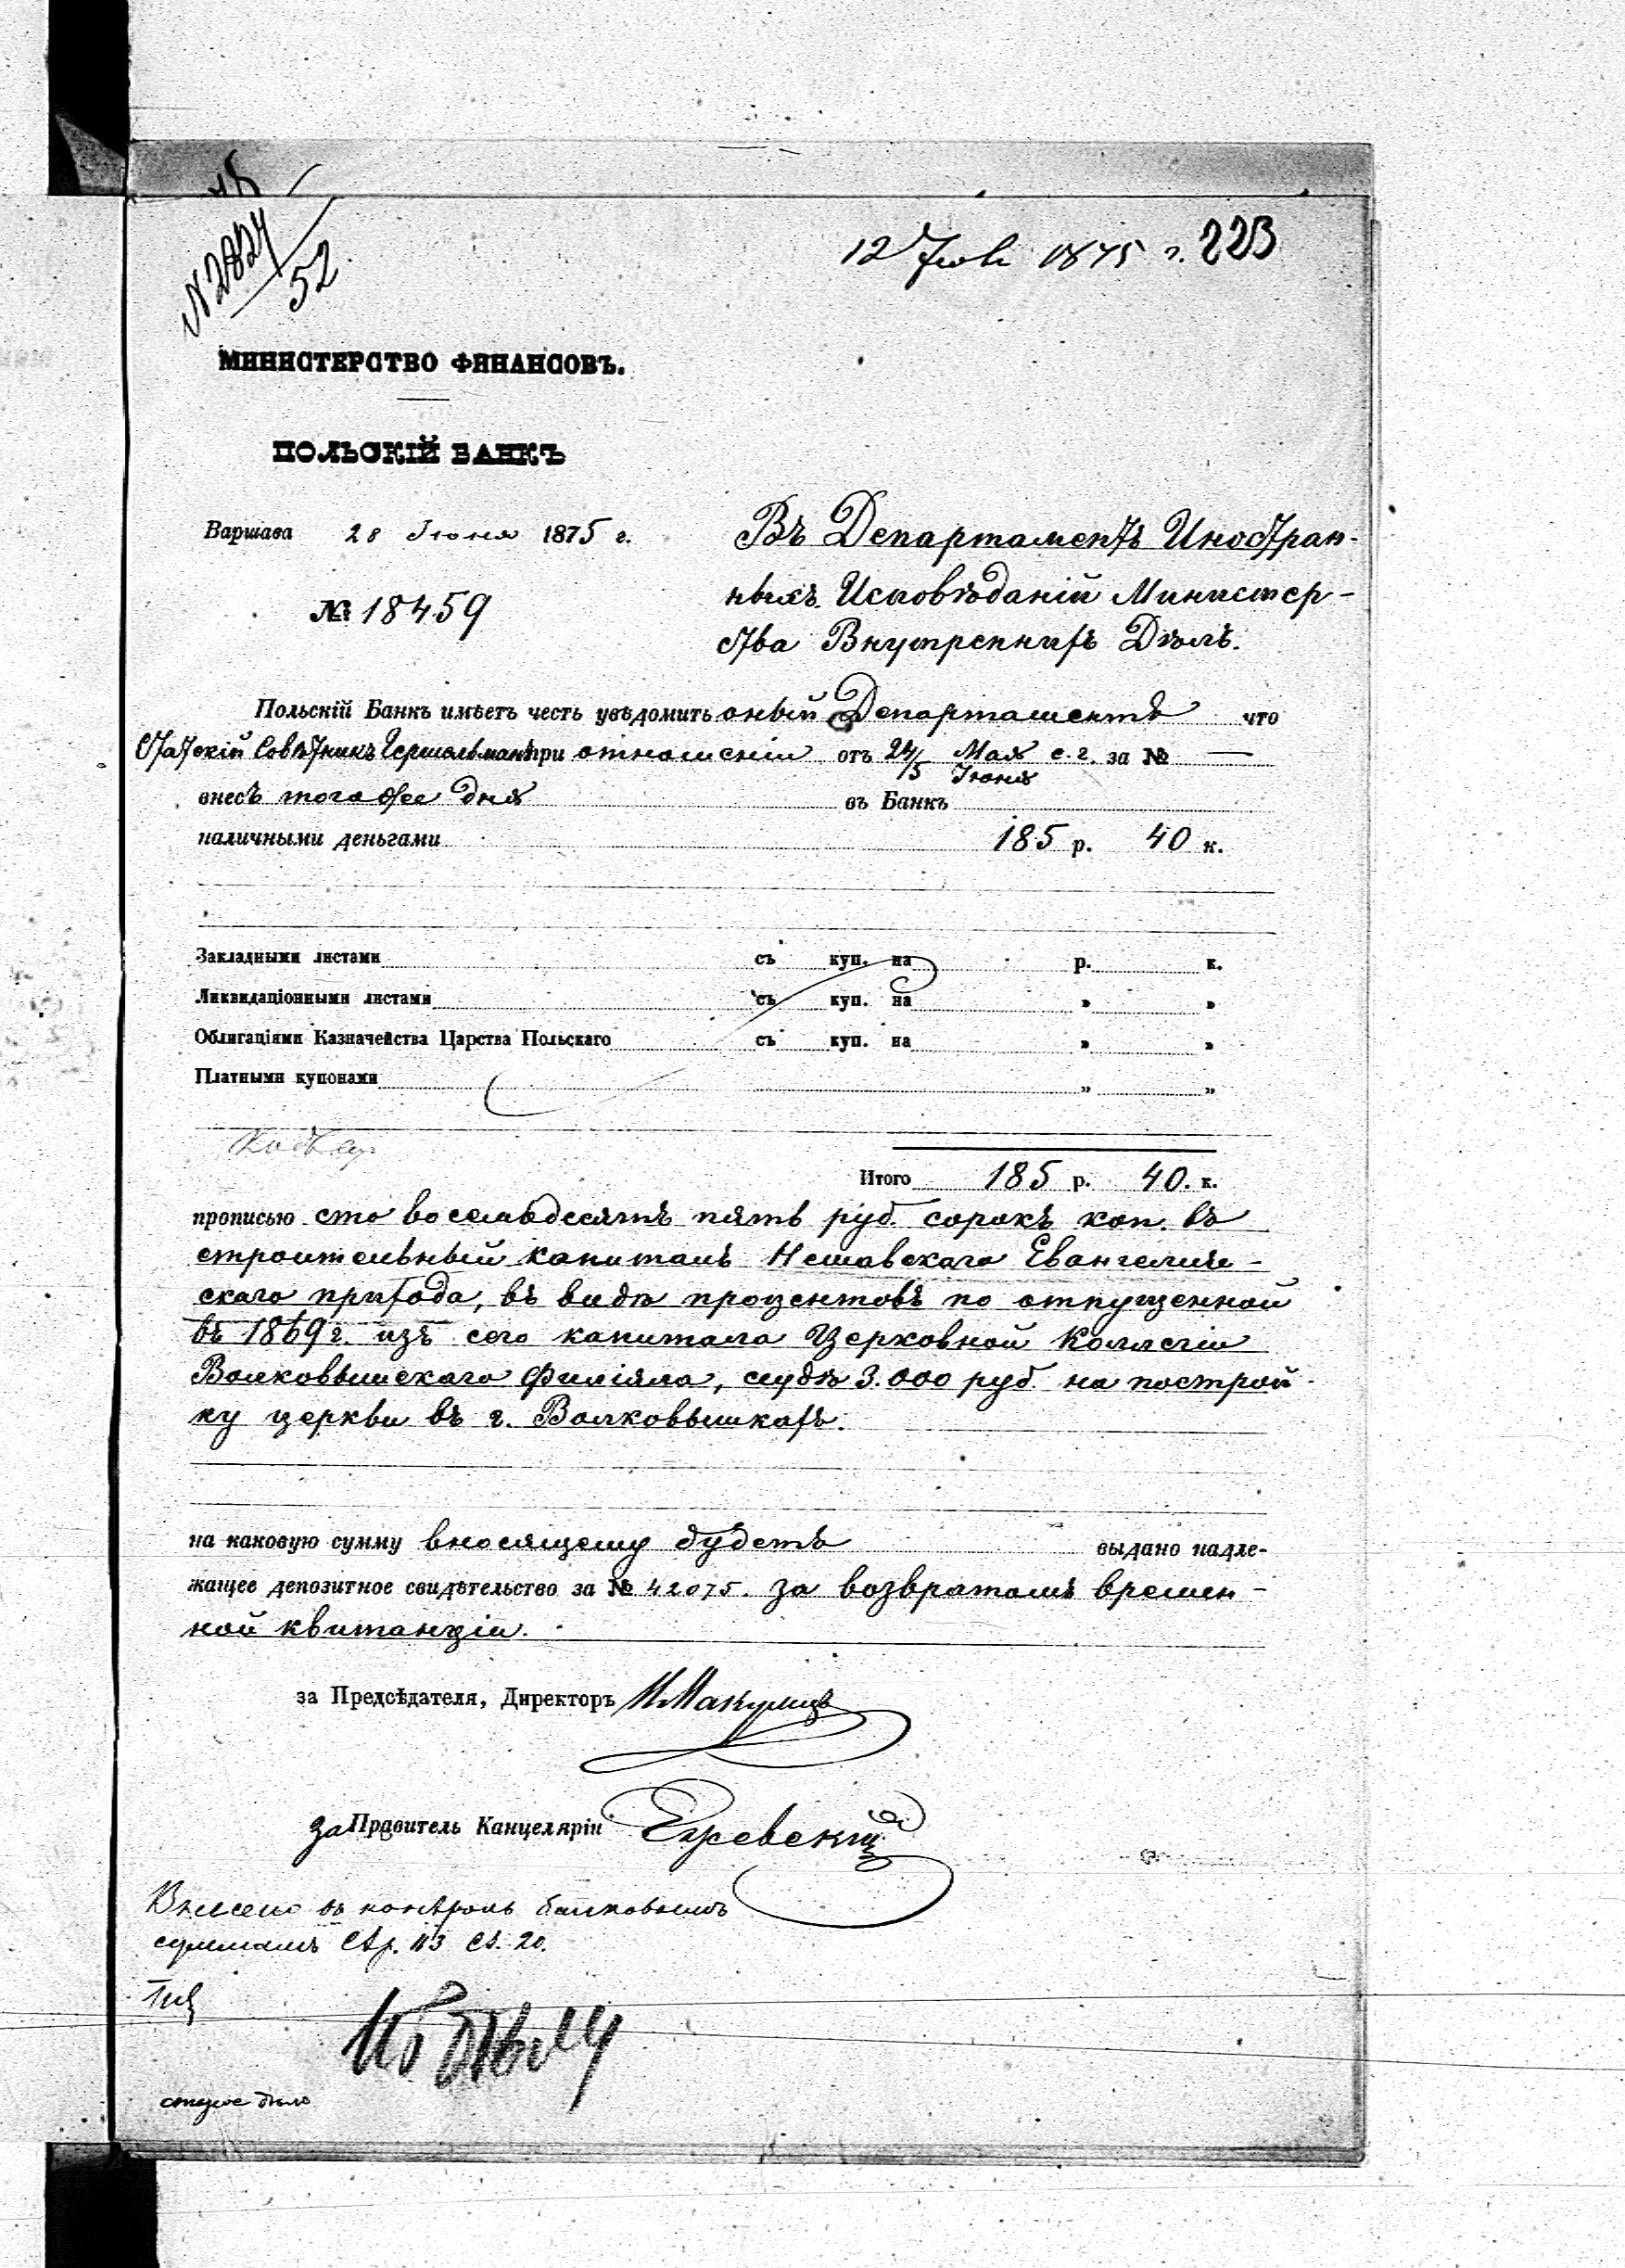 № 2824/52
12 Июля 1875 г. 223
МИНИСТЕРСТВО ФИНАНСОВЪ.
ПОЛЬСКІЙ БАНКЪ
Варшава 28 Іюня 1875 г.
№ 18459
Въ Департаментъ Иностран-
ныхъ Исповѣданій Министер-
ства Внутреннихъ Дѣлъ.
Польскій Банкъ имѣетъ честь увѣдомить оный Департаментъ что
Статскій Совѣтникъ Гершельманъ при отношеніи отъ 24/5 Мая/Іюня с. г. за № —
внесъ того же дня въ Банкъ
наличными деньгами 185 р. 40 к.
Закладными листами съ куп. на р. к.
Ликвидаціонными листами съ куп. на „ „
Облигаціями Казначейства Царства Польскаго съ куп. на „ „
Платными купонами „ „
Итого 185 р. 40. к.
прописью сто восемьдесятъ пять руб. сорокъ коп. въ
строительный капиталъ Нешавскаго Евангеличе-
скаго прихода, въ видѣ процентовъ по отпущенной
въ 1869 г. изъ сего капитала Церковной Коллегіи
Волковышскаго Филіяла, ссудѣ 3.000 руб. на построй-
ку церкви въ г. Волковышкахъ.
на каковую сумму вносящему будетъ выдано надле-
жащее депозитное свидѣтельство за № 42075. за возвратомъ времен-
ной квитанціи.
за Предсѣдателя, Директоръ
за Правитель Канцеляріи
Внесено въ контроль банковымъ
суммамъ Стр. 113 Ст. 20.